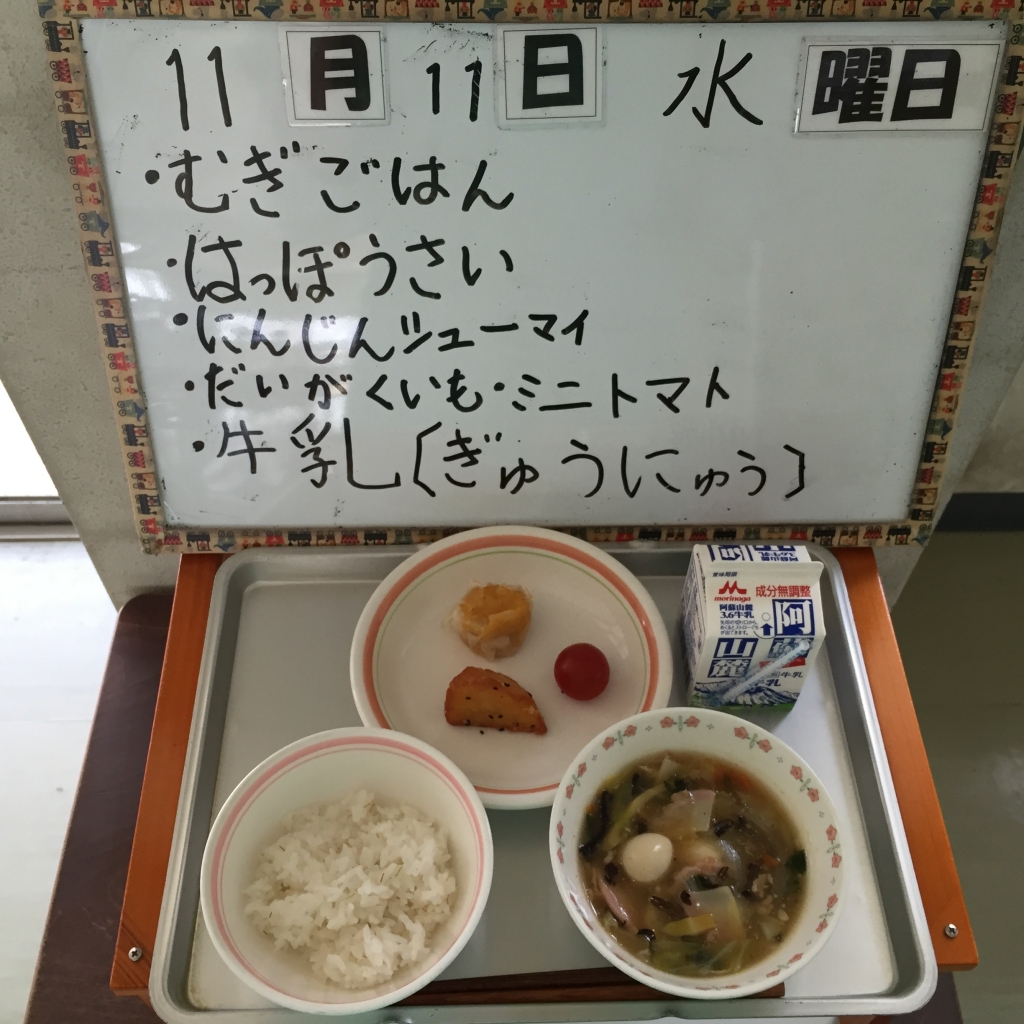 11月11日 水曜日
・むぎごはん
・はっぽうさい
・にんじんシューマイ
・だいがくいも・ミニトマト
・牛乳〔ぎゅうにゅう〕
morinaga
成分無調整
阿蘇山麓
3.6牛乳
阿
山麓